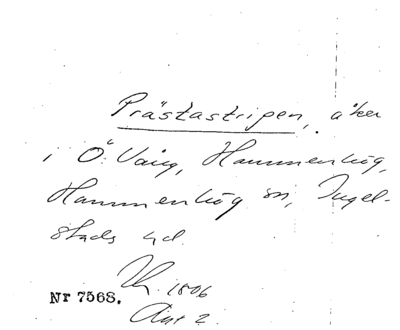 Prästastripen, åker
i Ö. Vång, Hammenhög,
Hammenhög sn, Ingel-
stads hd.
1806
Nr 7568.
Akt 2